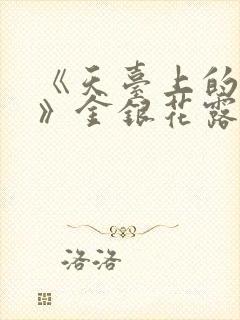 《天臺上的
》金銀花露
洛洛